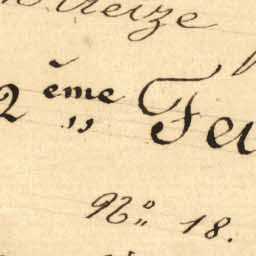 treize
2 ème Feu
Nº 18.